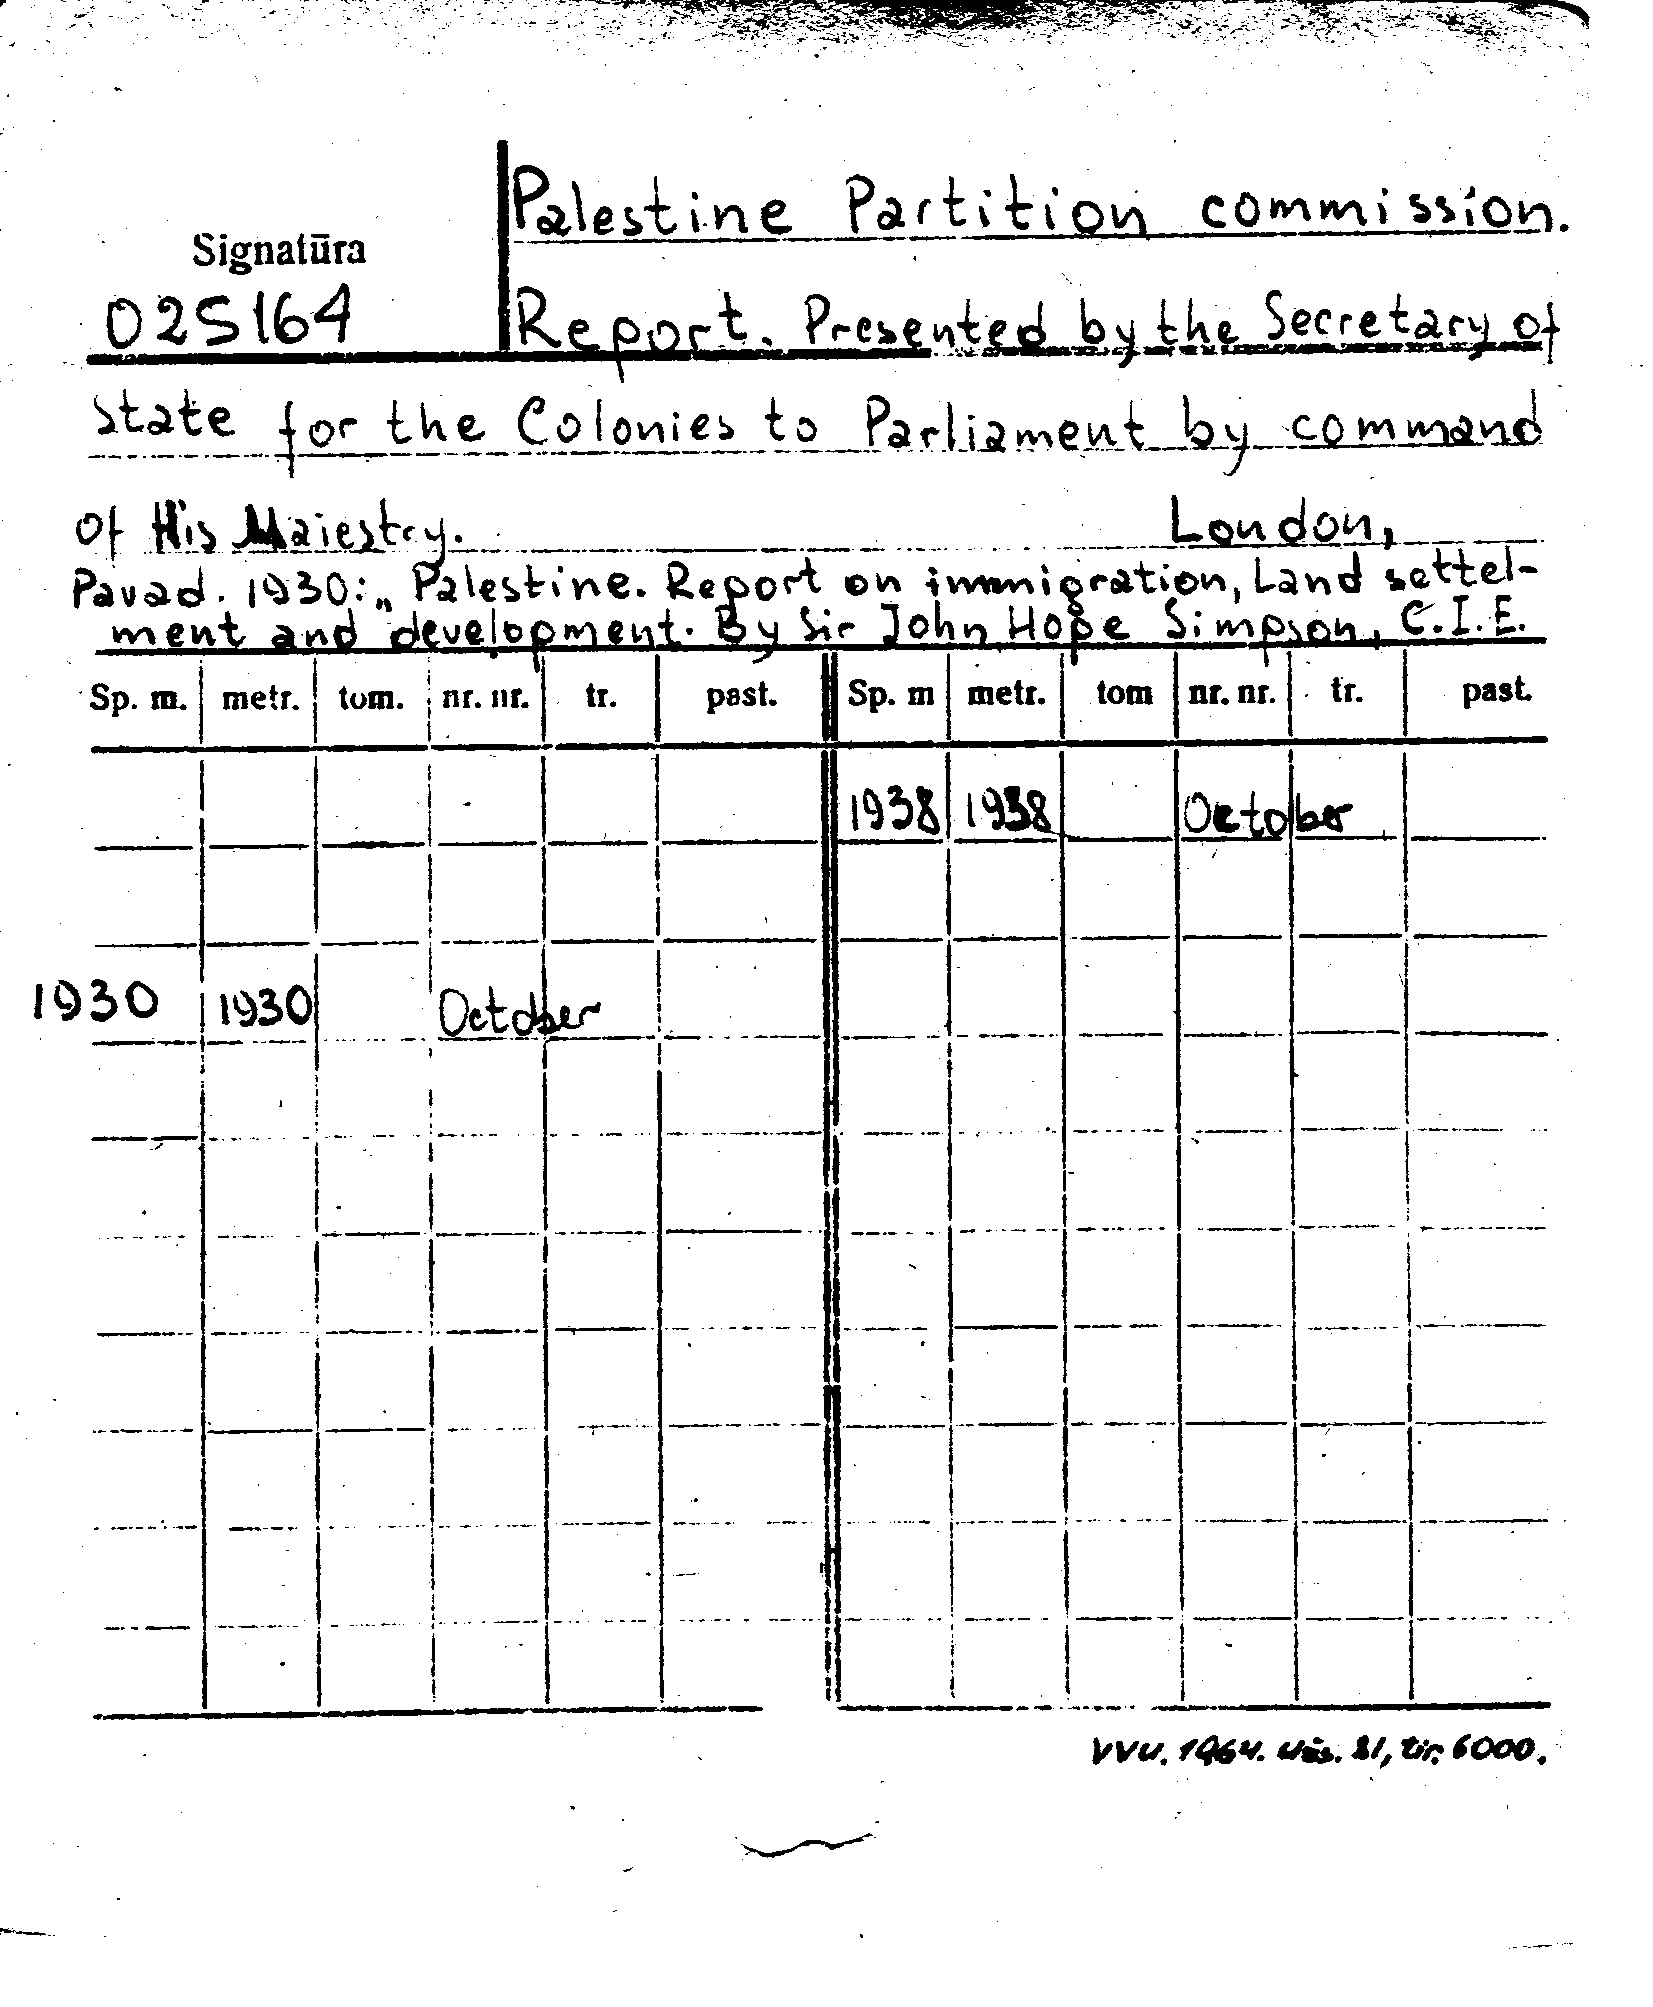 Palestine Partition commission.
Signatūra
025164
Report. Presented by the Secretary of
state for the Colonies to Parliament by command
of His Maiestry. London,
Pavad. 1930: „Palestine. Report on immigration, Land settel-
ment and development. By Sir John Hope Simpson, C.I.E.
Sp. m. metr. tom. nr. nr. tr. past. Sp. m metr. tom nr. nr. tr. past.
1938 1938 October
1930 1930 October
VVU. 1964. Užs. 81, tir. 6000.